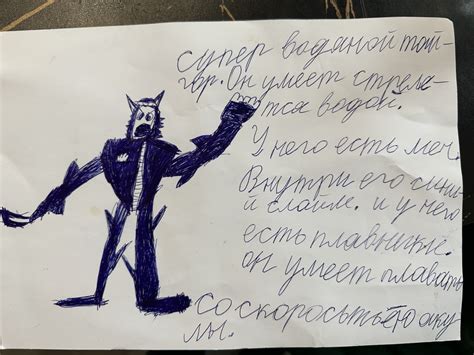 супер водяной той-
гер. Он умеет стреля-
тся водой.
У него есть меч.
Внутри его сини-
й слайм. и у него
есть плавники.
он умеет плавать
со скоростьтю аку
лы.